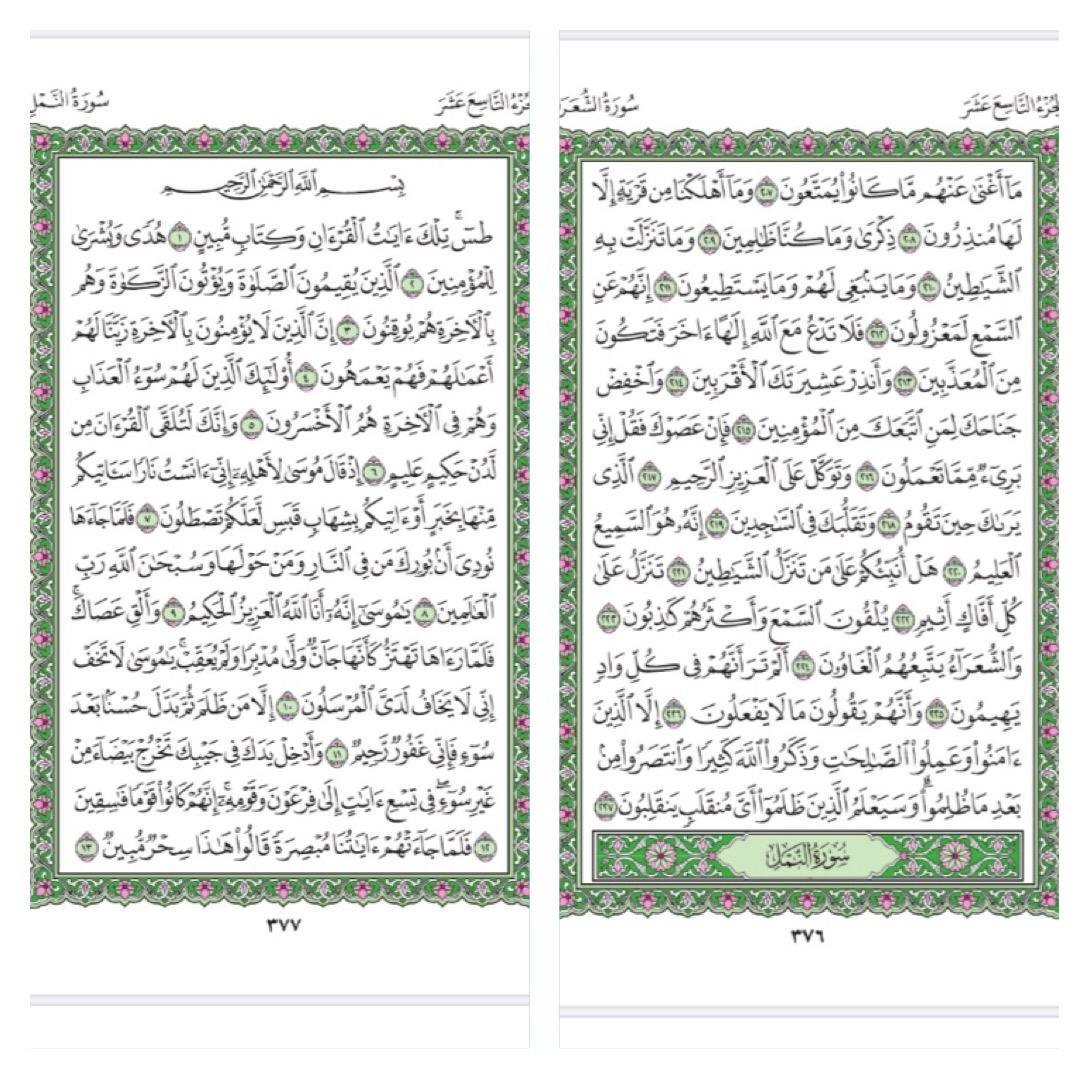 الجزء التاسع عشر
سورة الشعر
مَآ أَغۡنَىٰ عَنۡهُم مَّا كَانُواْ يُمَتَّعُونَ ٢٠٧ وَمَآ أَهۡلَكۡنَا مِن قَرۡيَةٍ إِلَّا
لَهَا مُنذِرُونَ ٢٠٨ ذِكۡرَىٰ وَمَا كُنَّا ظَٰلِمِينَ ٢٠٩ وَمَا تَنَزَّلَتۡ بِهِ
ٱلشَّيَٰطِينُ ٢١٠ وَمَا يَنۢبَغِي لَهُمۡ وَمَا يَسۡتَطِيعُونَ ٢١١ إِنَّهُمۡ عَنِ
ٱلسَّمۡعِ لَمَعۡزُولُونَ ٢١٢ فَلَا تَدۡعُ مَعَ ٱللَّهِ إِلَٰهًا ءَاخَرَ فَتَكُونَ
مِنَ ٱلۡمُعَذَّبِينَ ٢١٣ وَأَنذِرۡ عَشِيرَتَكَ ٱلۡأَقۡرَبِينَ ٢١٤ وَٱخۡفِضۡ
جَنَاحَكَ لِمَنِ ٱتَّبَعَكَ مِنَ ٱلۡمُؤۡمِنِينَ ٢١٥ فَإِنۡ عَصَوۡكَ فَقُلۡ إِنِّي
بَرِيٓءٞ مِّمَّا تَعۡمَلُونَ ٢١٦ وَتَوَكَّلۡ عَلَى ٱلۡعَزِيزِ ٱلرَّحِيمِ ٢١٧ ٱلَّذِي
يَرَىٰكَ حِينَ تَقُومُ ٢١٨ وَتَقَلُّبَكَ فِي ٱلسَّٰجِدِينَ ٢١٩ إِنَّهُۥ هُوَ ٱلسَّمِيعُ
ٱلۡعَلِيمُ ٢٢٠ هَلۡ أُنَبِّئُكُمۡ عَلَىٰ مَن تَنَزَّلُ ٱلشَّيَٰطِينُ ٢٢١ تَنَزَّلُ عَلَىٰ
كُلِّ أَفَّاكٍ أَثِيمٖ ٢٢٢ يُلۡقُونَ ٱلسَّمۡعَ وَأَكۡثَرُهُمۡ كَٰذِبُونَ ٢٢٣
وَٱلشُّعَرَآءُ يَتَّبِعُهُمُ ٱلۡغَاوُۥنَ ٢٢٤ أَلَمۡ تَرَ أَنَّهُمۡ فِي كُلِّ وَادٖ
يَهِيمُونَ ٢٢٥ وَأَنَّهُمۡ يَقُولُونَ مَا لَا يَفۡعَلُونَ ٢٢٦ إِلَّا ٱلَّذِينَ
ءَامَنُواْ وَعَمِلُواْ ٱلصَّٰلِحَٰتِ وَذَكَرُواْ ٱللَّهَ كَثِيرٗا وَٱنتَصَرُواْ مِنۢ
بَعۡدِ مَا ظُلِمُواْۗ وَسَيَعۡلَمُ ٱلَّذِينَ ظَلَمُوٓاْ أَيَّ مُنقَلَبٖ يَنقَلِبُونَ ٢٢٧
سُورَةُ النَّمۡلِ
٣٧٦
الجزء التاسع عشر
سورة النمل
بِسۡمِ ٱللَّهِ ٱلرَّحۡمَٰنِ ٱلرَّحِيمِ
طسٓۚ تِلۡكَ ءَايَٰتُ ٱلۡقُرۡءَانِ وَكِتَابٖ مُّبِينٍ ١ هُدٗى وَبُشۡرَىٰ
لِلۡمُؤۡمِنِينَ ٢ ٱلَّذِينَ يُقِيمُونَ ٱلصَّلَوٰةَ وَيُؤۡتُونَ ٱلزَّكَوٰةَ وَهُم
بِٱلۡأٓخِرَةِ هُمۡ يُوقِنُونَ ٣ إِنَّ ٱلَّذِينَ لَا يُؤۡمِنُونَ بِٱلۡأٓخِرَةِ زَيَّنَّا لَهُمۡ
أَعۡمَٰلَهُمۡ فَهُمۡ يَعۡمَهُونَ ٤ أُوْلَٰٓئِكَ ٱلَّذِينَ لَهُمۡ سُوٓءُ ٱلۡعَذَابِ
وَهُمۡ فِي ٱلۡأٓخِرَةِ هُمُ ٱلۡأَخۡسَرُونَ ٥ وَإِنَّكَ لَتُلَقَّى ٱلۡقُرۡءَانَ مِن
لَّدُنۡ حَكِيمٍ عَلِيمٍ ٦ إِذۡ قَالَ مُوسَىٰ لِأَهۡلِهِۦٓ إِنِّيٓ ءَانَسۡتُ نَارٗا سَـَٔاتِيكُم
مِّنۡهَا بِخَبَرٍ أَوۡ ءَاتِيكُم بِشِهَابٖ قَبَسٖ لَّعَلَّكُمۡ تَصۡطَلُونَ ٧ فَلَمَّا جَآءَهَا
نُودِيَ أَنۢ بُورِكَ مَن فِي ٱلنَّارِ وَمَنۡ حَوۡلَهَا وَسُبۡحَٰنَ ٱللَّهِ رَبِّ
ٱلۡعَٰلَمِينَ ٨ يَٰمُوسَىٰٓ إِنَّهُۥٓ أَنَا ٱللَّهُ ٱلۡعَزِيزُ ٱلۡحَكِيمُ ٩ وَأَلۡقِ عَصَاكَۚ
فَلَمَّا رَءَاهَا تَهۡتَزُّ كَأَنَّهَا جَآنّٞ وَلَّىٰ مُدۡبِرٗا وَلَمۡ يُعَقِّبۡۚ يَٰمُوسَىٰ لَا تَخَفۡ
إِنِّي لَا يَخَافُ لَدَيَّ ٱلۡمُرۡسَلُونَ ١٠ إِلَّا مَن ظَلَمَ ثُمَّ بَدَّلَ حُسۡنَۢا بَعۡدَ
سُوٓءٖ فَإِنِّي غَفُورٞ رَّحِيمٞ ١١ وَأَدۡخِلۡ يَدَكَ فِي جَيۡبِكَ تَخۡرُجۡ بَيۡضَآءَ مِنۡ
غَيۡرِ سُوٓءٖۖ فِي تِسۡعِ ءَايَٰتٍ إِلَىٰ فِرۡعَوۡنَ وَقَوۡمِهِۦٓۚ إِنَّهُمۡ كَانُواْ قَوۡمٗا فَٰسِقِينَ
١٢ فَلَمَّا جَآءَتۡهُمۡ ءَايَٰتُنَا مُبۡصِرَةٗ قَالُواْ هَٰذَا سِحۡرٞ مُّبِينٞ ١٣
٣٧٧